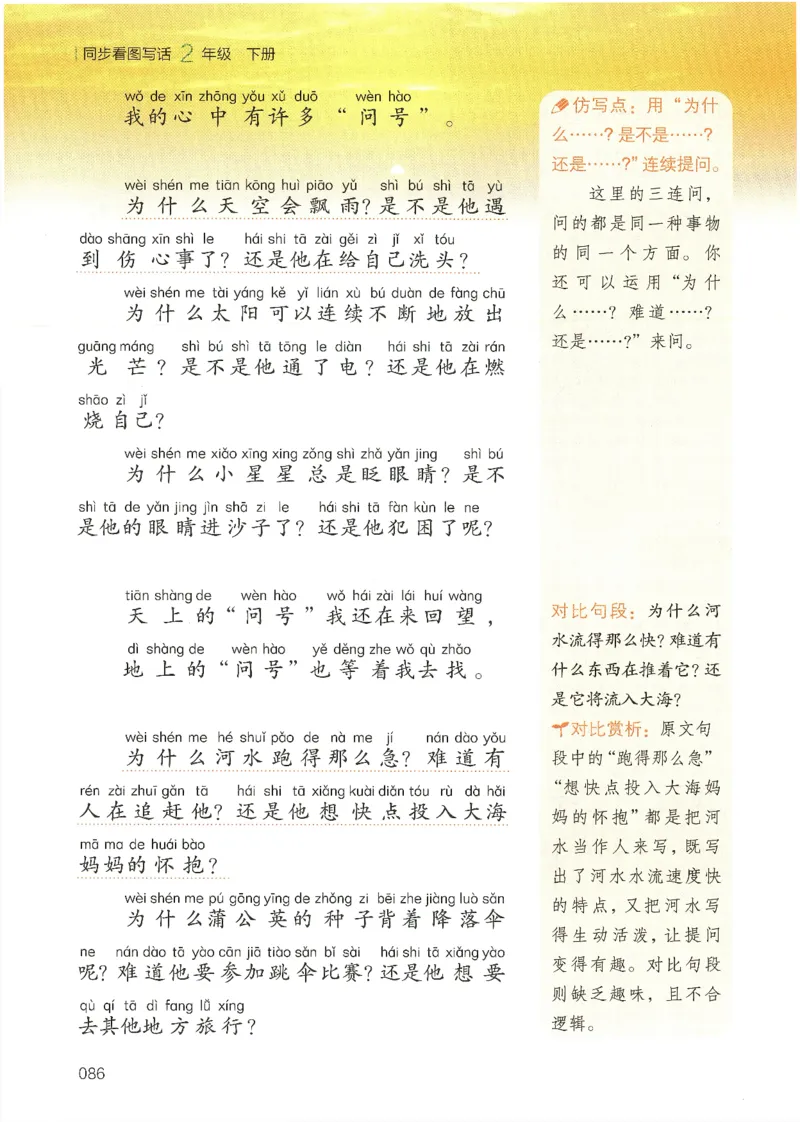 同步看图写话 2 年级 下册
wǒ de xīn zhōng yǒu xǔ duō wèn hào
我的心中有许多“问号”。
wèi shén me tiān kōng huì piāo yǔ shì bú shì tā yù
为什么天空会飘雨？是不是他遇
dào shāng xīn shì le hái shi tā zài gěi zì jǐ xǐ tóu
到伤心事了？还是他在给自己洗头？
wèi shén me tài yáng kě yǐ lián xù bú duàn de fàng chū
为什么太阳可以连续不断地放出
guāng máng shì bú shì tā tōng le diàn hái shi tā zài rán
光芒？是不是他通了电？还是他在燃
shāo zì jǐ
烧自己？
wèi shén me xiǎo xīng xing zǒng shì zhǎ yǎn jing shì bú
为什么小星星总是眨眼睛？是不
shì tā de yǎn jing jìn shā zi le hái shi tā fàn kùn le ne
是他的眼睛进沙子了？还是他犯困了呢？
tiān shàng de wèn hào wǒ hái zài lái huí wàng
天上的“问号”我还在来回望，
dì shàng de wèn hào yě děng zhe wǒ qù zhǎo
地上的“问号”也等着我去找。
wèi shén me hé shuǐ pǎo de nà me jí nán dào yǒu
为什么河水跑得那么急？难道有
rén zài zhuī gǎn tā hái shi tā xiǎng kuài diǎn tóu rù dà hǎi
人在追赶他？还是他想快点投入大海
mā ma de huái bào
妈妈的怀抱？
wèi shén me pú gōng yīng de zhǒng zi bēi zhe jiàng luò sǎn
为什么蒲公英的种子背着降落伞
ne nán dào tā yào cān jiā tiào sǎn bǐ sài hái shi tā xiǎng yào
呢？难道他要参加跳伞比赛？还是他想要
qù qí tā dì fang lǚ xíng
去其他地方旅行？
086
仿写点：用“为什
么……？是不是……？
还是……？”连续提问。
这里的三连问，
问的都是同一种事物
的同一个方面。你
还可以运用“为什
么……？难道……？
还是……？”来问。
对比句段：为什么河
水流得那么快？难道有
什么东西在推着它？还
是它将流入大海？
对比赏析：原文句
段中的“跑得那么急”
“想快点投入大海妈
妈的怀抱”都是把河
水当作人来写，既写
出了河水水流速度快
的特点，又把河水写
得生动活泼，让提问
变得有趣。对比句段
则缺乏趣味，且不合
逻辑。